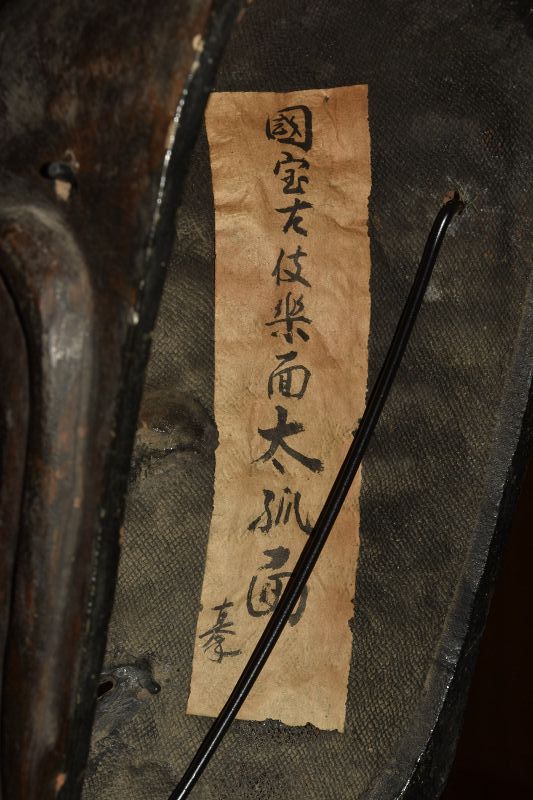 國宝古伎楽面太孤面